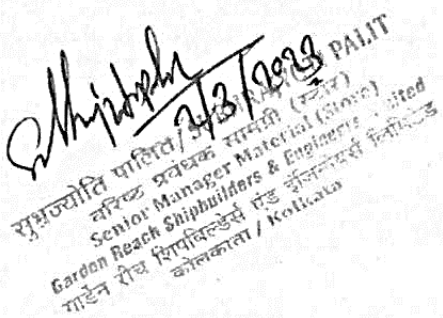 2/3/2023
सुभज्योति पालित/ PALIT
वरिष्ठ प्रबंधक सामग्री (स्टोर)
Senior Manager Material (Store)
Garden Reach Shipbuilders & Engineers Limited
गार्डेन रीच शिपबिल्डर्स एंड इंजिनियर्स लिमिटेड
कोलकाता / Kolkata